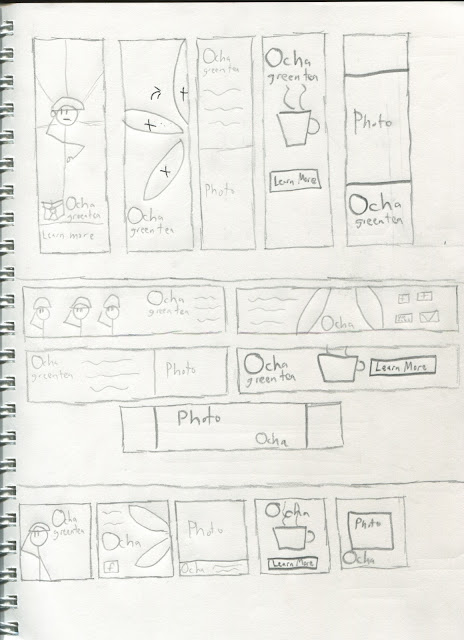 Ocha
green tea
Learn more
Ocha
green tea
Ocha
green tea
Photo
Ocha
green tea
Learn More
Photo
Ocha
green tea
Ocha
green tea
Ocha
Ocha
green tea
Photo
Ocha
green tea
Learn More
Photo
Ocha
Ocha
green tea
Ocha
f
Photo
Ocha
Ocha
Learn More
Photo
Ocha